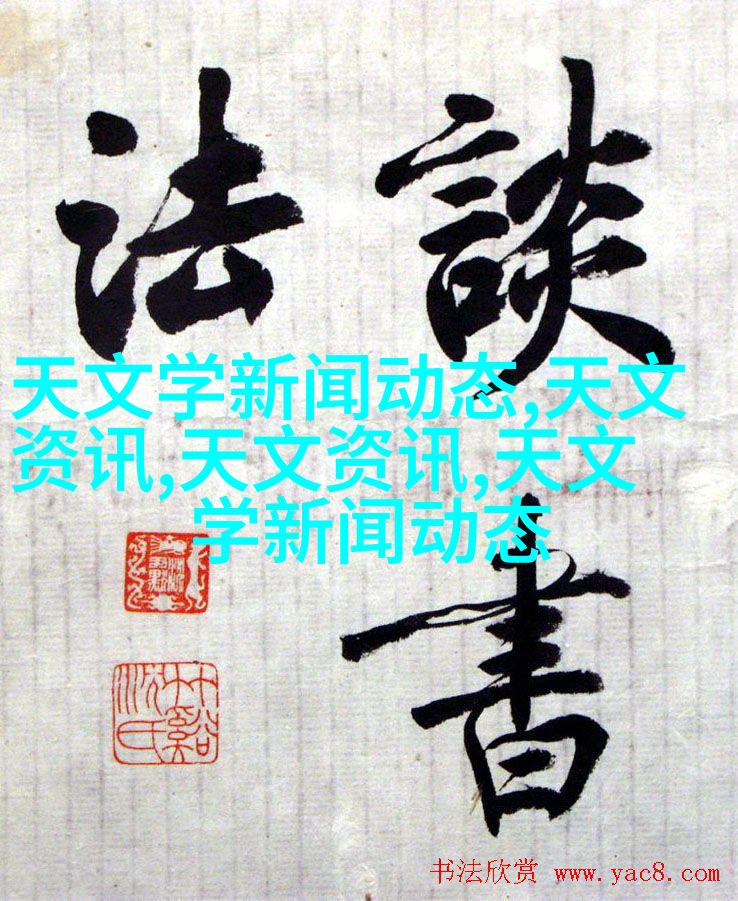 談書
法
天文学新闻动态,天文
资讯,天文资讯,天文
学新闻动态
书法欣赏 www.yac8.com